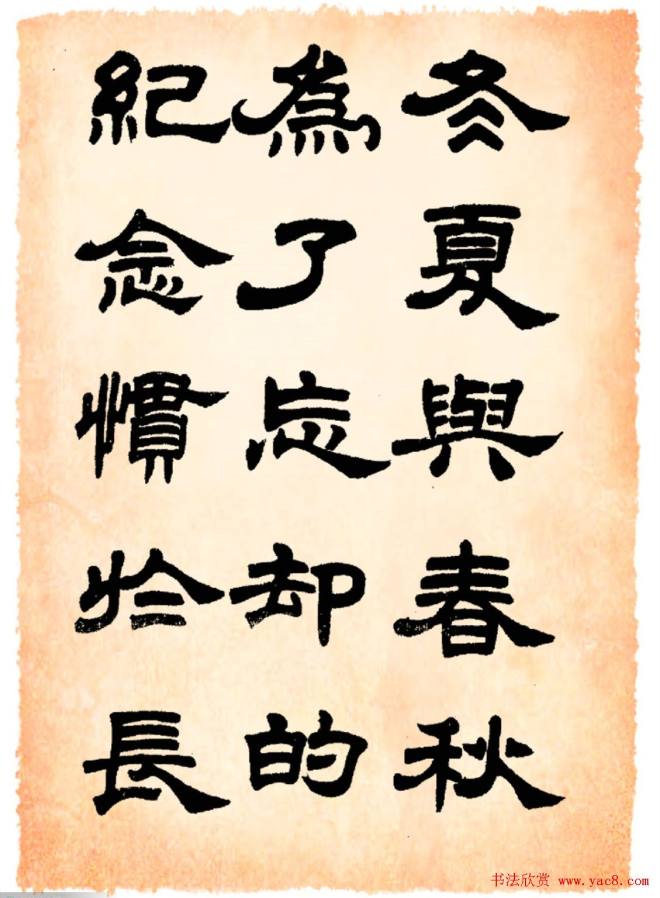 冬夏與春秋
為了忘却的
紀念慣於長
书法欣赏 www.yac8.com